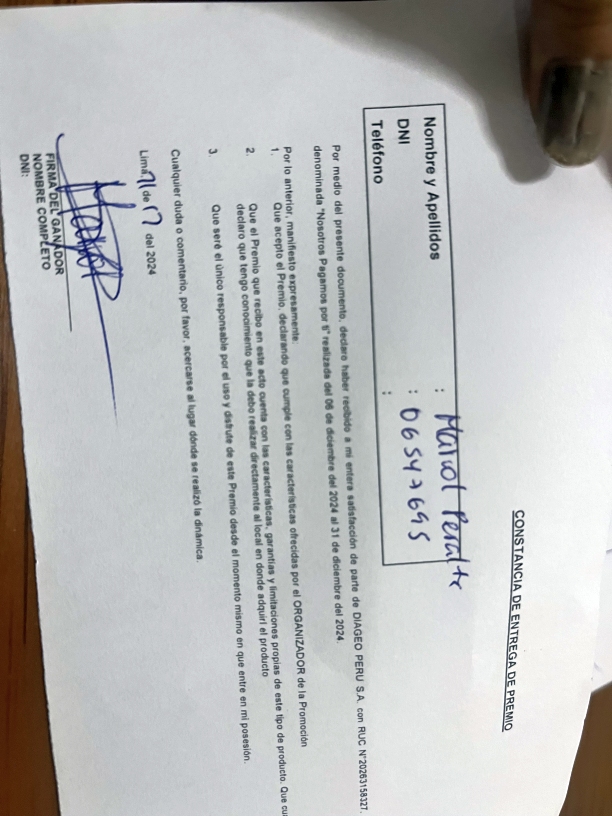 CONSTANCIA DE ENTREGA DE PREMIO
Nombre y Apellidos : Marol Peralta
DNI : 06547695
Teléfono :
Por medio del presente documento, declaro haber recibido a mi entera satisfacción de parte de DIAGEO PERU S.A. con RUC N°20263158327,
denominada "Nosotros Pagamos por ti" realizada del 06 de diciembre del 2024 al 31 de diciembre del 2024.
Por lo anterior, manifiesto expresamente:
1. Que acepto el Premio, declarando que cumple con las características ofrecidas por el ORGANIZADOR de la Promoción
2. Que el Premio que recibo en este acto cuenta con las características, garantías y limitaciones propias de este tipo de producto. Que
declaro que tengo conocimiento que la debo realizar directamente al local en donde adquirí el producto
3. Que seré el único responsable por el uso y disfrute de este Premio desde el momento mismo en que entre en mi posesión.
Cualquier duda o comentario, por favor, acercarse al lugar dónde se realizó la dinámica.
Lima, de del 2024
FIRMA DEL GANADOR
NOMBRE COMPLETO
DNI: